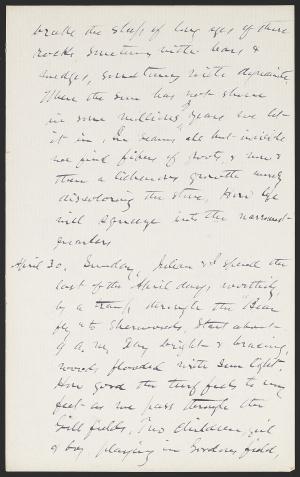 broke the sleep of long ages of these
rocks sometimes with bars &
sledges, sometimes with dynamite.
Where the sun has not shone
in some millions of years we let
it in. In seams all but invisible
we find fibres of roots, & now &
then a lichenous growth merely
discoloring the stone,
will squeeze into the narrowest
quarters
April 30. Sunday, Julian & I spend the
last of the April days, worthily,
by a tramp through the "Bear
fly" to Sherwoods, Start about
9 a.m. Day bright & bracing,
woods flooded with sun light.
How good the turf feels to my
feet as we pass through the
Gill fields. Two children, girl
& boy playing in Gordons field,